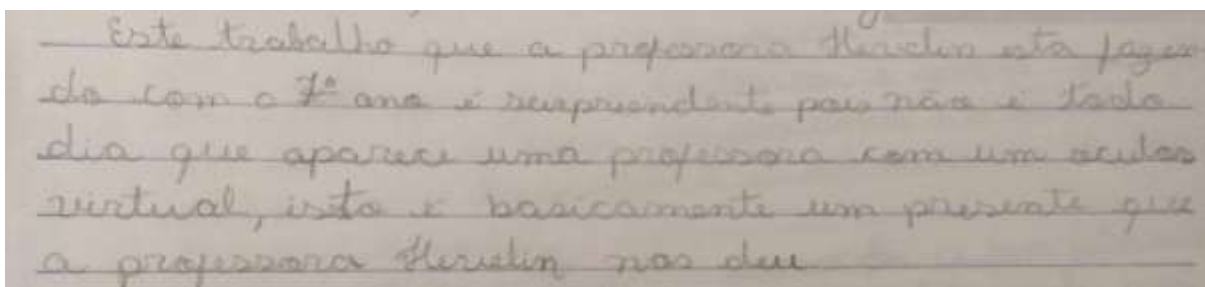 Este trabalho que a professora esta fazen
do com o 7º ano é surpriendente pois não é todo
dia que aparece uma professora com um oculos
virtual, isto é basicamente um presente que
a professora nos deu